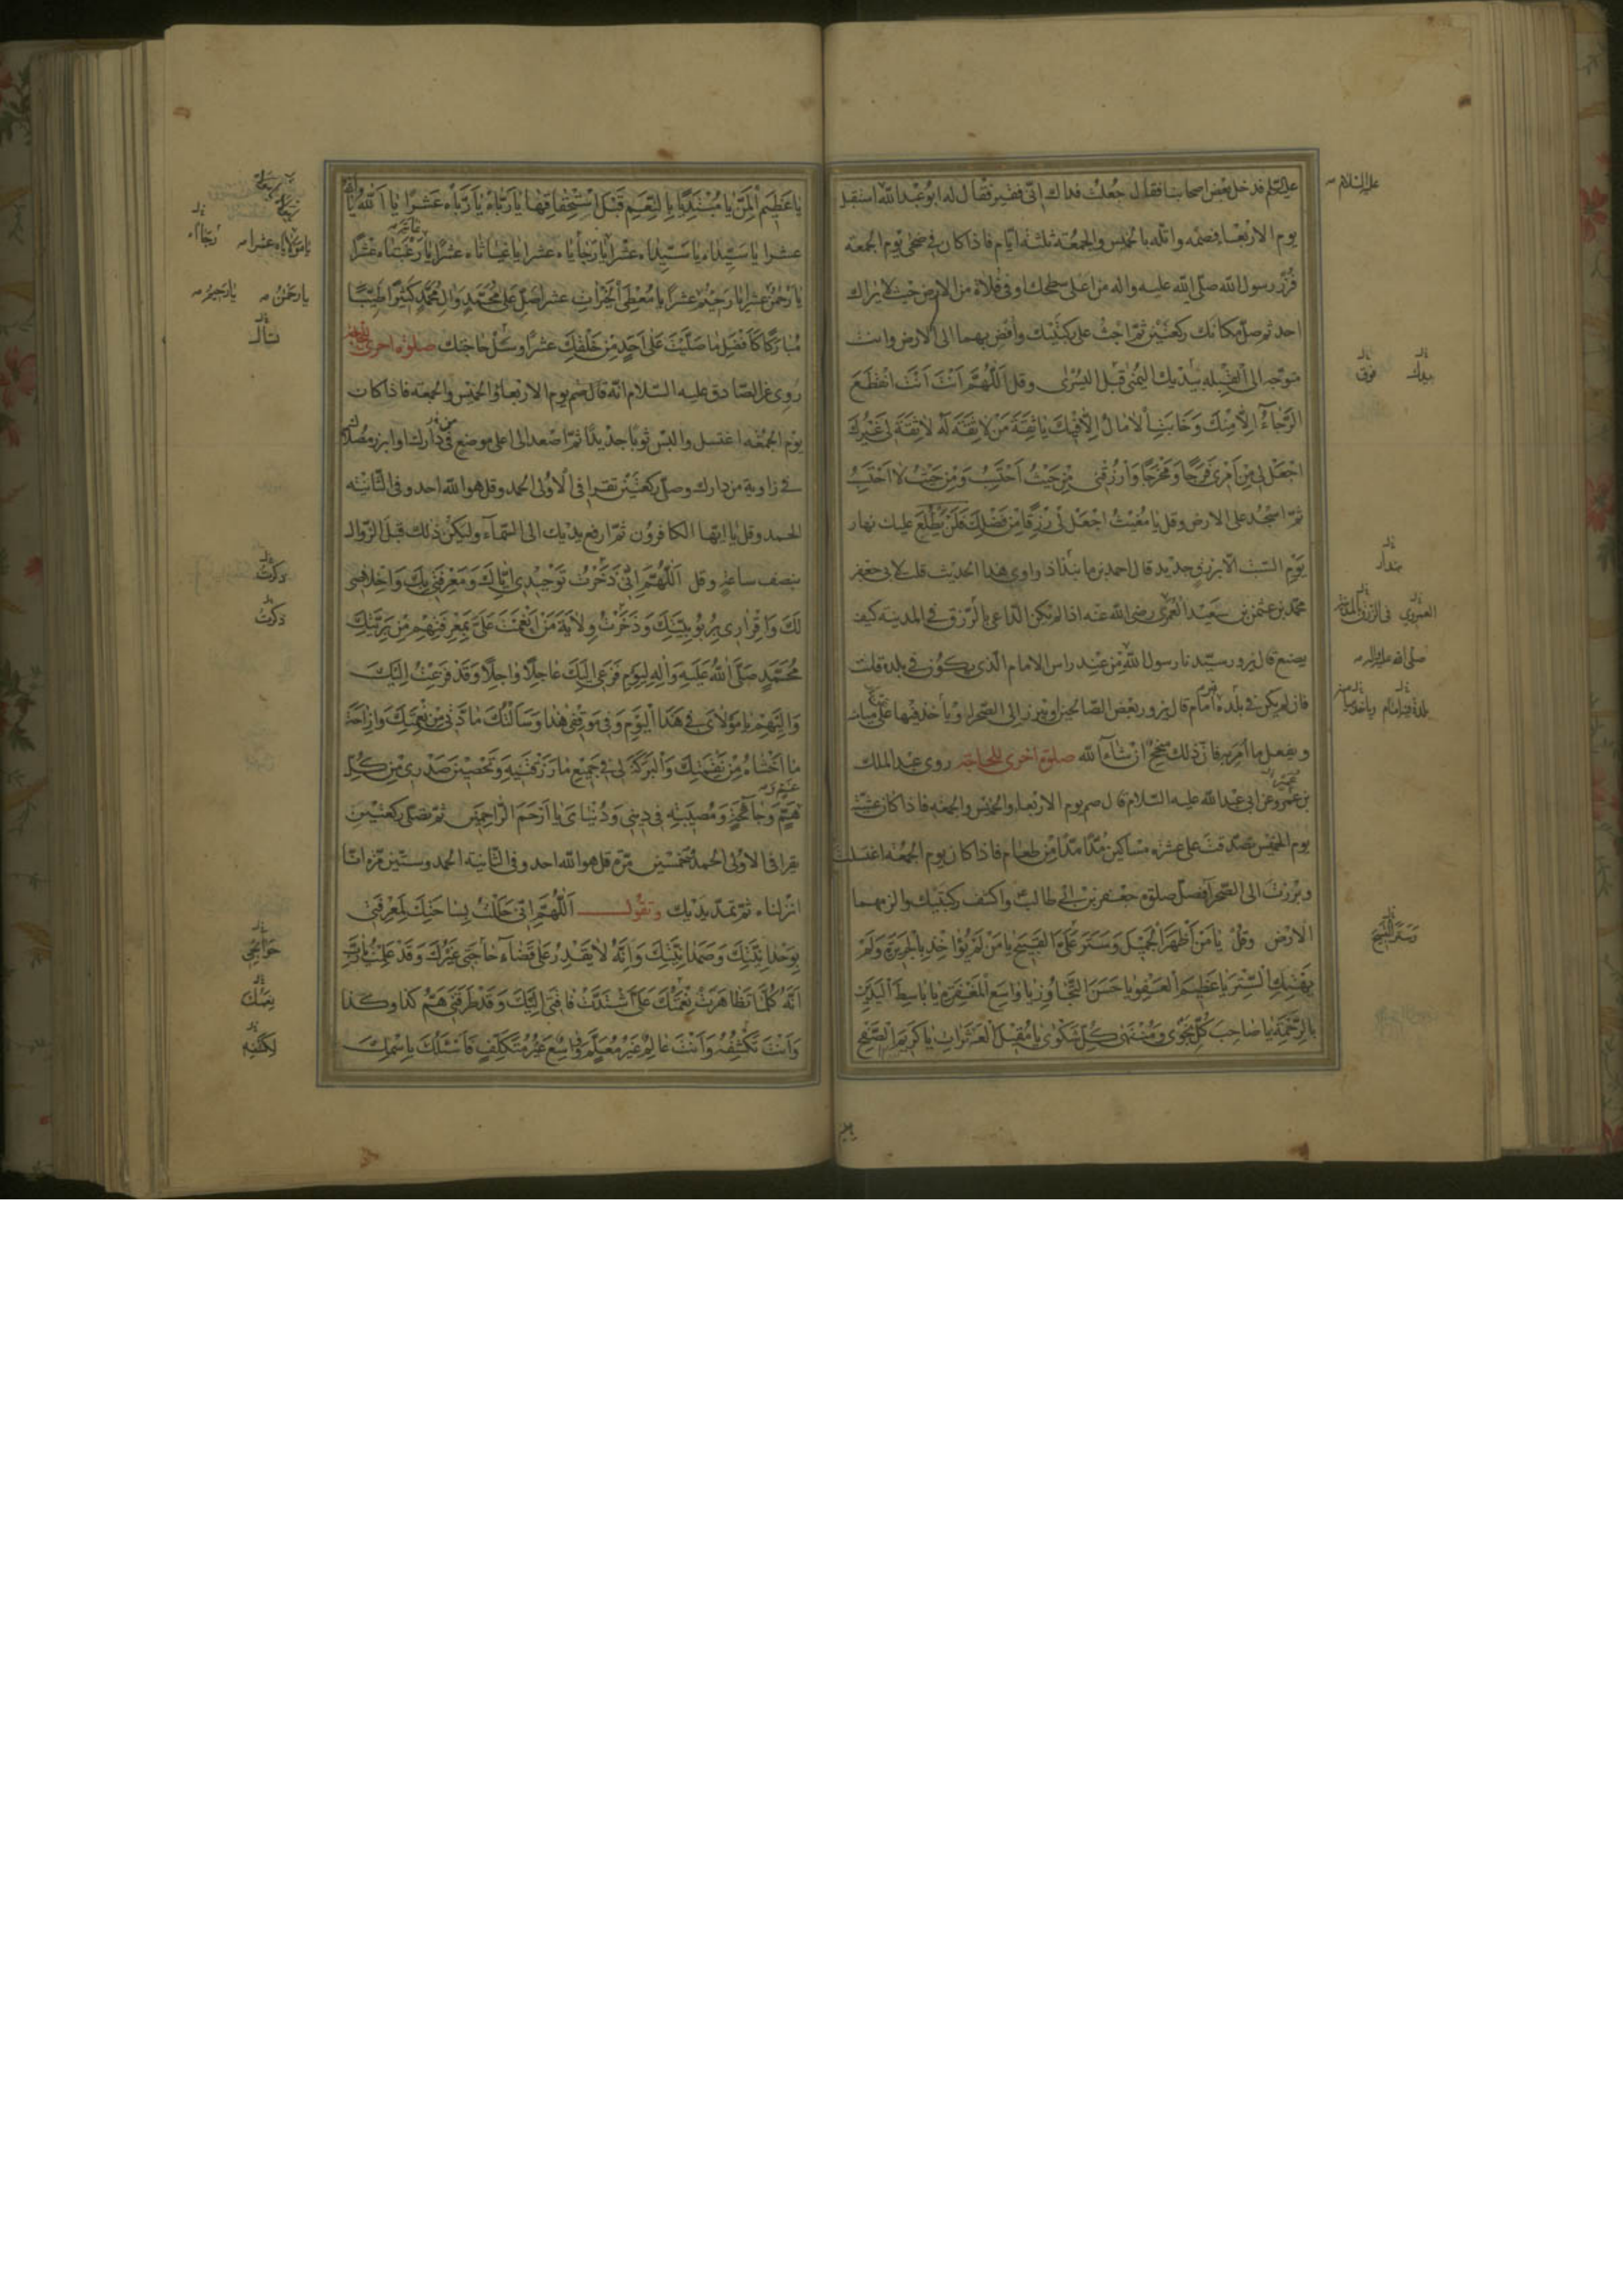 عليه السلم فدخل بعض اصحابنا فقال جُعلتُ فداك انّى فقير فقال له ابوعبد الله استقبل
يوم الاربعاء فصُمه واتله بالخميس والجمعة ثلثة ايّام فاذا كان فى ضحى يوم الجمعة
فزُر رسول الله صلّى الله عليه واله من اعلى سطحك او فى فلاة من الارض حيث لا يراك
احد ثم صلّ مكانك ركعتين ثمّ اجثُ على ركبتيك وافض بهما الى الارض وانت
متوجّه الى القبلة بيدك اليمنى قبل اليسرى وقل اَللّهُمَّ اَنْتَ اَنْتَ انْقَطَعَ
الرَّجٰاۤءُ اِلّا مِنْكَ وَخٰابَتِ الْاٰمٰالُ اِلّا فيكَ يٰا ثِقَةَ مَنْ لٰا ثِقَةَ لَهُ لٰا ثِقَةَ لى غَيْرُكَ
اجْعَلْ لى مِنْ اَمْرى فَرَجًا وَمَخْرَجًا وَارْزُقْنى مِنْ حَيْثُ اَحْتَسِبُ وَمِنْ حَيْثُ لٰا اَحْتَسِبُ
ثمّ اسجُد على الارض وقل يٰا مُغيثُ اجْعَلْ لى رِزْقًا مِنْ فَضْلِكَ فَلَنْ يَطْلُعَ عليك نهار
يوم السّبت الّا برزق جديد قال احمد بن مابنداذ راوى هذا الحديث قلت لابى جعفر
محمّد بن عثمن بن سعيد العمرى رضى الله عنه اذا لم يكن الدّاعى بالرّزق فى المدينة كيف
يصنع قال يزور سيّدنا رسول الله من عند راس الامام الّذى يكون فى بلده قلت
فان لم يكن فى بلده امام قال يزور بعض الصّالحين ويبرز الى الصّحراء ويأخذ فيها على ميامنه
ويفعل ما اُمر به فانّ ذلك منجح ان شاء الله صلوة اخرى للحاجة روى عبد الملك
بن عمرو عن ابى عبد الله عليه السّلام قال صم يوم الاربعاء والخميس والجمعة فاذا كان عشيّة
يوم الخميس تصدّقت على عشرة مساكين مُدًّا مدًّا من طعام فاذا كان يوم الجمعة اغتسلت
وبرزت الى الصّحراء فصلّ صلوة جعفر بن ابى طالب واكشف ركبتيك والزمهما
الارض وقل يٰا مَنْ اَظْهَرَ الْجَميلَ وَسَتَرَ عَلَىَّ الْقَبيحَ يٰا مَنْ لَمْ يُؤٰاخِذْ بِالْجَريرَةِ وَلَمْ
يَهْتِكِ السِّتْرَ يٰا عَظيمَ الْعَفْوِ يٰا حَسَنَ التَّجٰاوُزِ يٰا وٰاسِعَ الْمَغْفِرَةِ يٰا بٰاسِطَ الْيَدَيْنِ
بِالرَّحْمَةِ يٰا صٰاحِبَ كُلِّ نَجْوٰى وَمُنْتَهٰى كُلِّ شَكْوٰى يٰا مُقيلَ الْعَثَرٰاتِ يٰا كَريمَ الصَّفْحِ
عليه السّلام
يديك فوق
بندار
العمرى فى الرزق بالمدينة
صلى الله عليه واله
وَسَتَرَ الْقَبيحَ
يٰا عَظيمَ الْمَنِّ يٰا مُبْتَدِئًا بِالنِّعَمِ قَبْلَ اسْتِحْقٰاقِهٰا يٰا رَبّٰاهُ يٰا رَبّٰاهُ عَشْرًا يٰا اَللهُ يٰا اللهُ
عشرا يٰا سَيِّدٰاهُ يٰا سَيِّدٰاهُ عشرًا يٰا رَجٰايٰاهُ عشرا يٰا غِيٰاثٰاهُ عشرًا يٰا رَغْبَتٰاهُ عَشْرًا
يٰا رَحْمٰنُ عشرا يٰا رَحيمُ عشرًا يٰا مُعْطِىَ الْخَيْرٰاتِ عشرا صَلِّ عَلى مُحَمَّدٍ وَاٰلِ مُحَمَّدٍ كَثيرًا طَيِّبًا
مُبٰارَكًا كَاَفْضَلِ مٰا صَلَّيْتَ عَلٰى اَحَدٍ مِنْ خَلْقِكَ عشرًا وسَل حاجتك صلوة اخرى للحاجة
روى عن الصّادق عليه السّلام انّه قال صُم يوم الاربعاء والخميس والجمعة فاذا كان
يوم الجمعة اغتسل والبس ثوبًا جديدًا ثمّ اصعد الى اعلى موضع فى دارك او ابرز مصلّاك
فى زاوية من دارك وصلّ ركعتين تقرا فى الاولى الحمد وقل هو الله احد وفى الثّانية
الحمد وقل يا ايّها الكافرون ثمّ ارفع يديك الى السّماۤء وليكن ذلك قبل الزّوال
بنصف ساعة وقل اَللّهُمَّ اِنّى ذَخَرْتُ تَوْحيدى اِيّٰاكَ وَمَعْرِفَتى بِكَ وَاِخْلٰاصى
لَكَ وَاِقْرٰارى بِرُبُوبِيَّتِكَ وَذَخَرْتُ وِلٰايَةَ مَنْ اَنْعَمْتَ عَلَىَّ بِمَعْرِفَتِهِمْ مِنْ بَرِيَّتِكَ
مُحَمَّدٍ صَلَّى اللهُ عَلَيْهِ وَاٰلِهِ لِيَوْمِ فَزَعى اِلَيْكَ عٰاجِلًا وَاٰجِلًا وَقَدْ فَزِعْتُ اِلَيْكَ
وَاِلَيْهِمْ يٰا مَوْلٰاىَ فى هٰذَا الْيَوْمِ وَفى مَوْقِفى هٰذٰا وَسَاَلْتُكَ مٰادَّتى مِنْ نِعْمَتِكَ وَاِزٰاحَةَ
مٰا اَخْشٰاهُ مِنْ نَقِمَتِكَ وَالْبَرَكَةَ لى فى جَميعِ مٰا رَزَقْتَنيهِ وَتَحْصينَ صَدْرى مِنْ كُلِّ
هَمٍّ وَجٰاۤئِحَةٍ وَمُصيبَةٍ فى دينى وَدُنْيٰاىَ يٰا اَرْحَمَ الرّٰاحِمينَ ثمّ تصلّى ركعتين
يقرا فى الاولى الحمد وخمسين مرّة قل هو الله احد وفى الثّانية الحمد وستّين مرّة انّا
انزلناه ثمّ تمدّ يديك وتقول اَللّهُمَّ اِنّى حَلَلْتُ بِسٰاحَتِكَ لِمَعْرِفَتى
بِوَحْدٰانِيَّتِكَ وَصَمَدٰانِيَّتِكَ وَاِنَّهُ لٰا يَقْدِرُ عَلٰى قَضٰاۤءِ حٰاجَتى غَيْرُكَ وَقَدْ عَلِمْتُ يٰا رَبِّ
اَنَّهُ كُلَّمٰا تَظٰاهَرَتْ نِعْمَتُكَ عَلَىَّ اشْتَدَّتْ فٰاقَتى اِلَيْكَ وَقَدْ طَرَقَنى هَمُّ كَذا وكذا
وَاَنْتَ تَكْشِفُهُ وَاَنْتَ عٰالِمٌ غَيْرُ مُعَلَّمٍ وٰاسِعٌ غَيْرُ مُتَكَلِّفٍ فَاَسْئَلُكَ بِاسْمِكَ
يٰا مَوْلٰايٰاهُ عشرا
يا رحمٰنُ يا رحيمُ
تسأل
ذكرتُ
ذكرتُ
حَوٰاۤئِجى
نِعَمُكَ